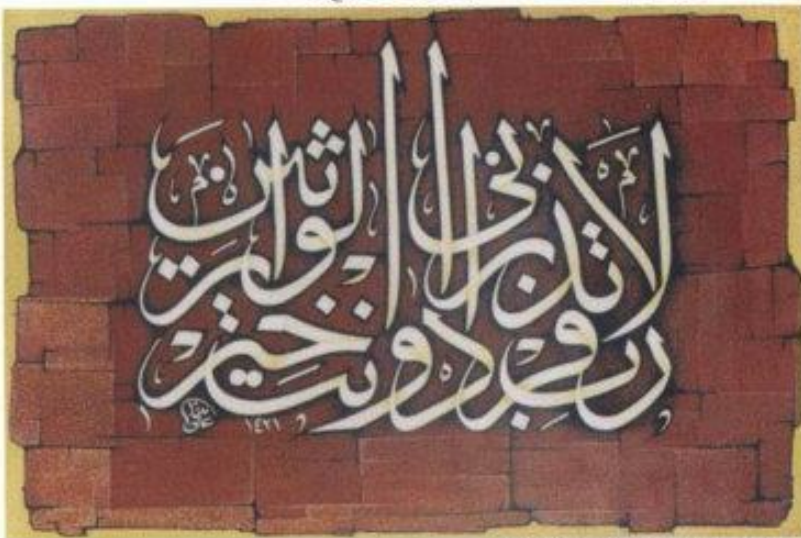 رب لا تذرني فردا وأنت خير الوارثين
١٤٢١